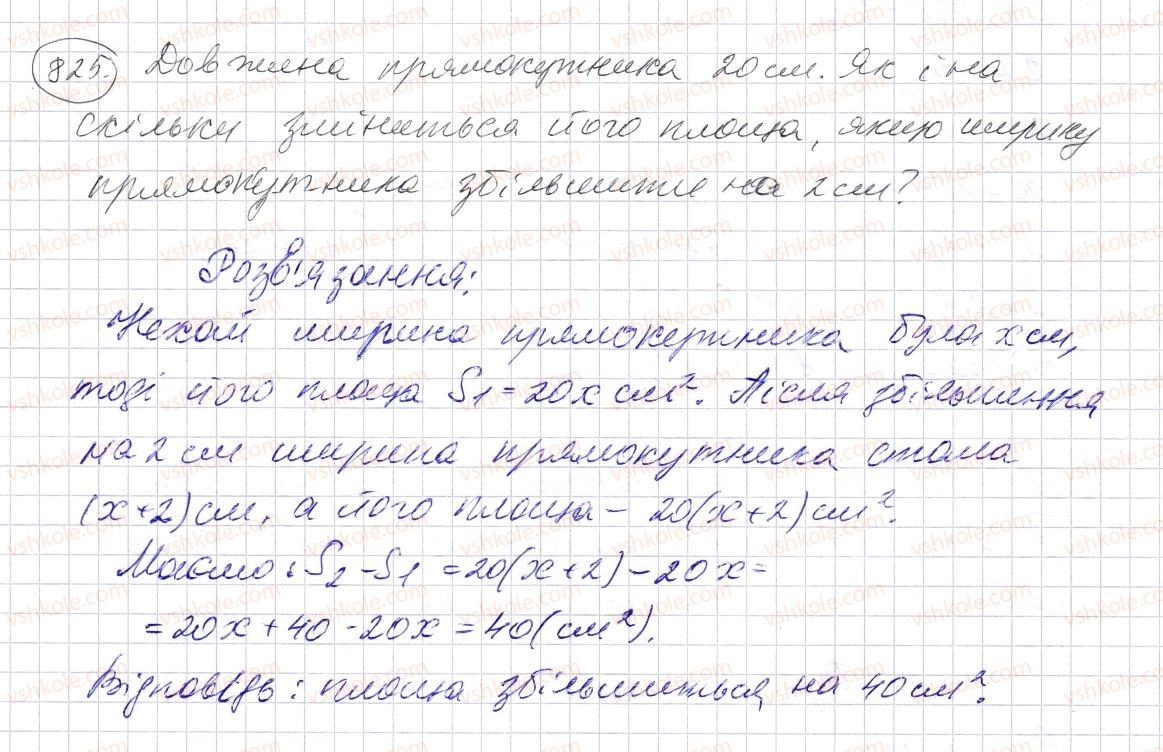 825. Довжина прямокутника 20 см. Як і на
скільки зміниться його площа, якщо ширину
прямокутника збільшити на 2 см?
Розв'язання:
Нехай ширина прямокутника була x см,
тоді його площа S1 = 20x см². Після збільшення
на 2 см ширина прямокутника стала
(x+2) см, а його площа – 20(x+2) см².
Маємо: S2 - S1 = 20(x+2) - 20x =
= 20x + 40 - 20x = 40 (см²).
Відповідь: площа збільшиться на 40 см².